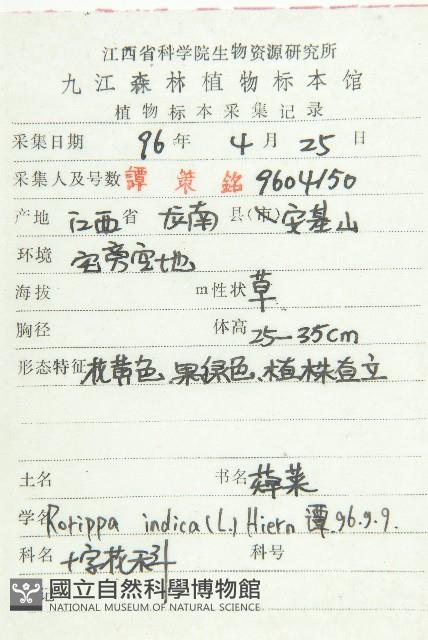 江西省科学院生物资源研究所
九江森林植物标本馆
植物标本采集记录
采集日期 96年 4月 25日
采集人及号数 譚策銘 9604150
产地 江西省 龙南县(市) 安基山
环境 宅旁空地
海拔 m 性状 草
胸径 体高 25—35cm
形态特征 花黄色、果绿色、植株直立
土名 书名 蔊菜
学名 Rorippa indica (L.) Hiern 譚 96.9.9.
科名 十字花科 科号
記
國立自然科學博物館
NATIONAL MUSEUM OF NATURAL SCIENCE